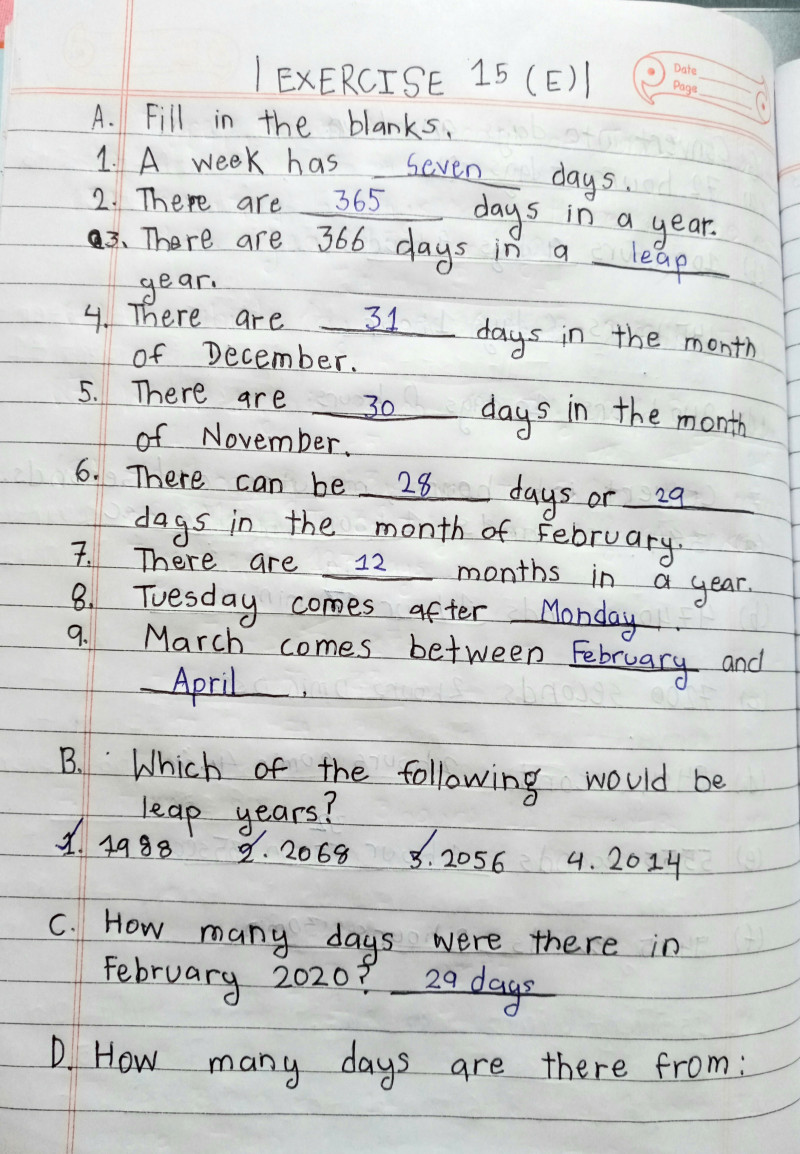 EXERCISE 15 (E)
Date
Page
A. Fill in the blanks.
1. A week has seven days.
2. There are 365 days in a year.
Q3. There are 366 days in a leap
year.
4. There are 31 days in the month
of December.
5. There are 30 days in the month
of November.
6. There can be 28 days or 29
days in the month of February.
7. There are 12 months in a year.
8. Tuesday comes after Monday.
9. March comes between February and
April.
B. Which of the following would be
leap years?
1. 1988 2. 2068 3. 2056 4. 2014
C. How many days were there in
February 2020? 29 days
D. How many days are there from: